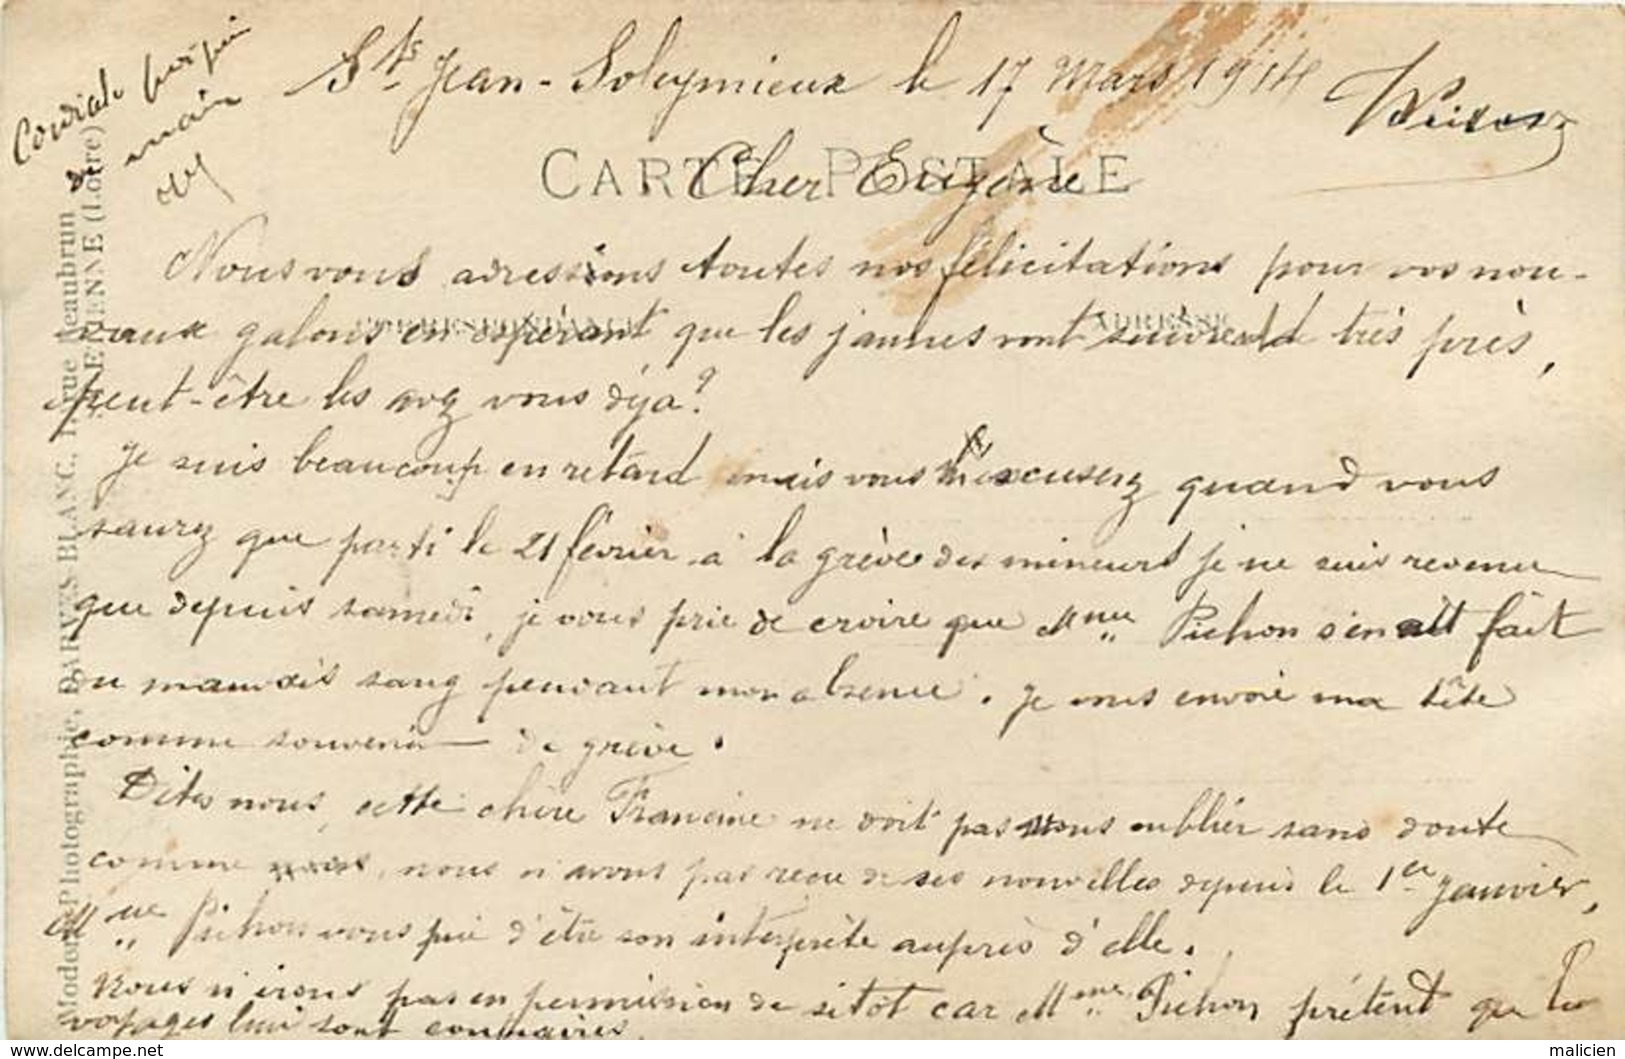 St Jean-Soleymieux le 17 Mars 1914
Cordiale
de main
CARTE POSTALE
Cher Eugène
Nous vous adressons toutes nos félicitations pour vos nou-
veaux galons en espérant que les jaunes vont suivre de très près,
peut-être les avez vous déja?
Je suis beaucoup en retard mais vous m'excuserez quand vous
saurez que parti le 21 février à la grève des mineurs je ne suis revenu
que depuis samedi, je vous prie de croire que Mme Pichon s'en fait
du mauvais sang pendant mon absence. Je vous envoie ma tête
comme souvenir de grève.
Dites nous, cette chère Francine ne doit pas nous oublier sans doute
comme, nous n'avons pas reçu de ses nouvelles depuis le 1er Janvier,
Mme Pichon vous prie d'être son interprète auprès d'elle.
Nous n'irons pas en permission de sitôt car Mme Pichon prétent que les
voyages lui sont contraires.
CORRESPONDANCE
ADRESSE
Photographie, DARVES BLANC, 1, rue Beaubrun
ST-ETIENNE (Loire)
www.delcampe.net
malicien